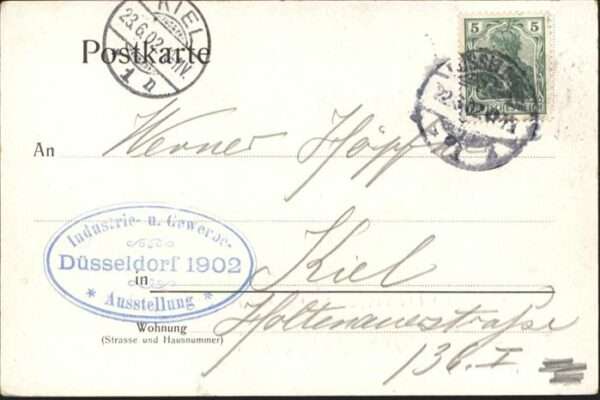 KIEL
23.6.02
1 n
Postkarte
5 5
An Werner
Industrie- u. Gewerbe-
Düsseldorf 1902
* Ausstellung *
in Kiel
Wohnung
(Strasse und Hausnummer)
Holtenauerstraße
136. I.